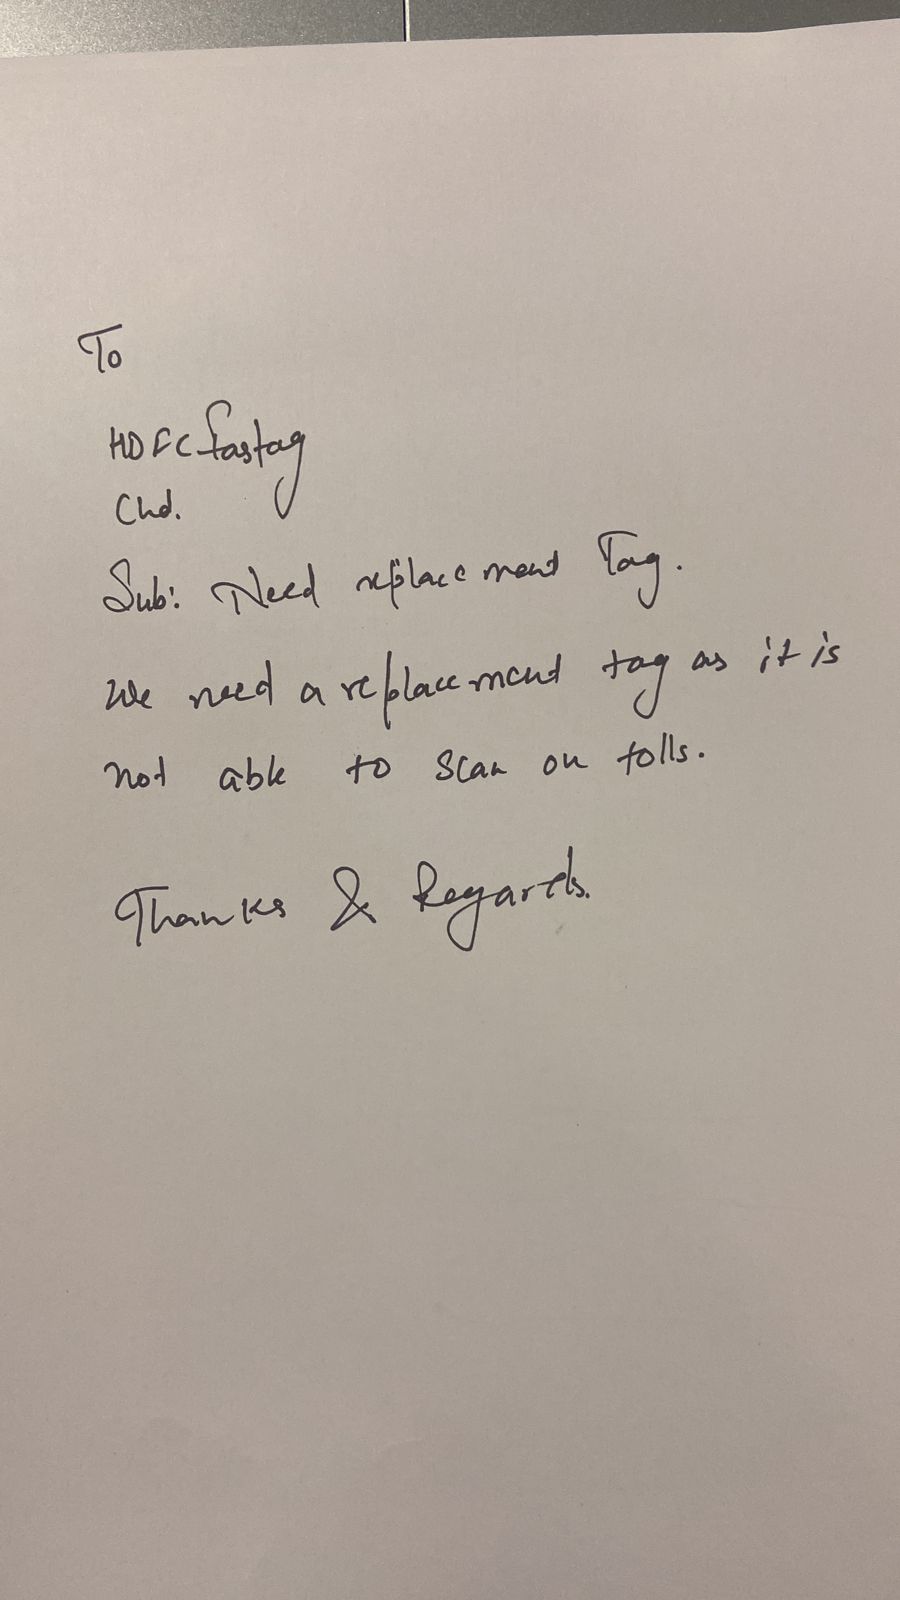 To
HDFC fastag
Chd.
Sub: Need replacement Tag.
We need a replacement tag as it is
not able to scan on tolls.
Thanks & Regards.